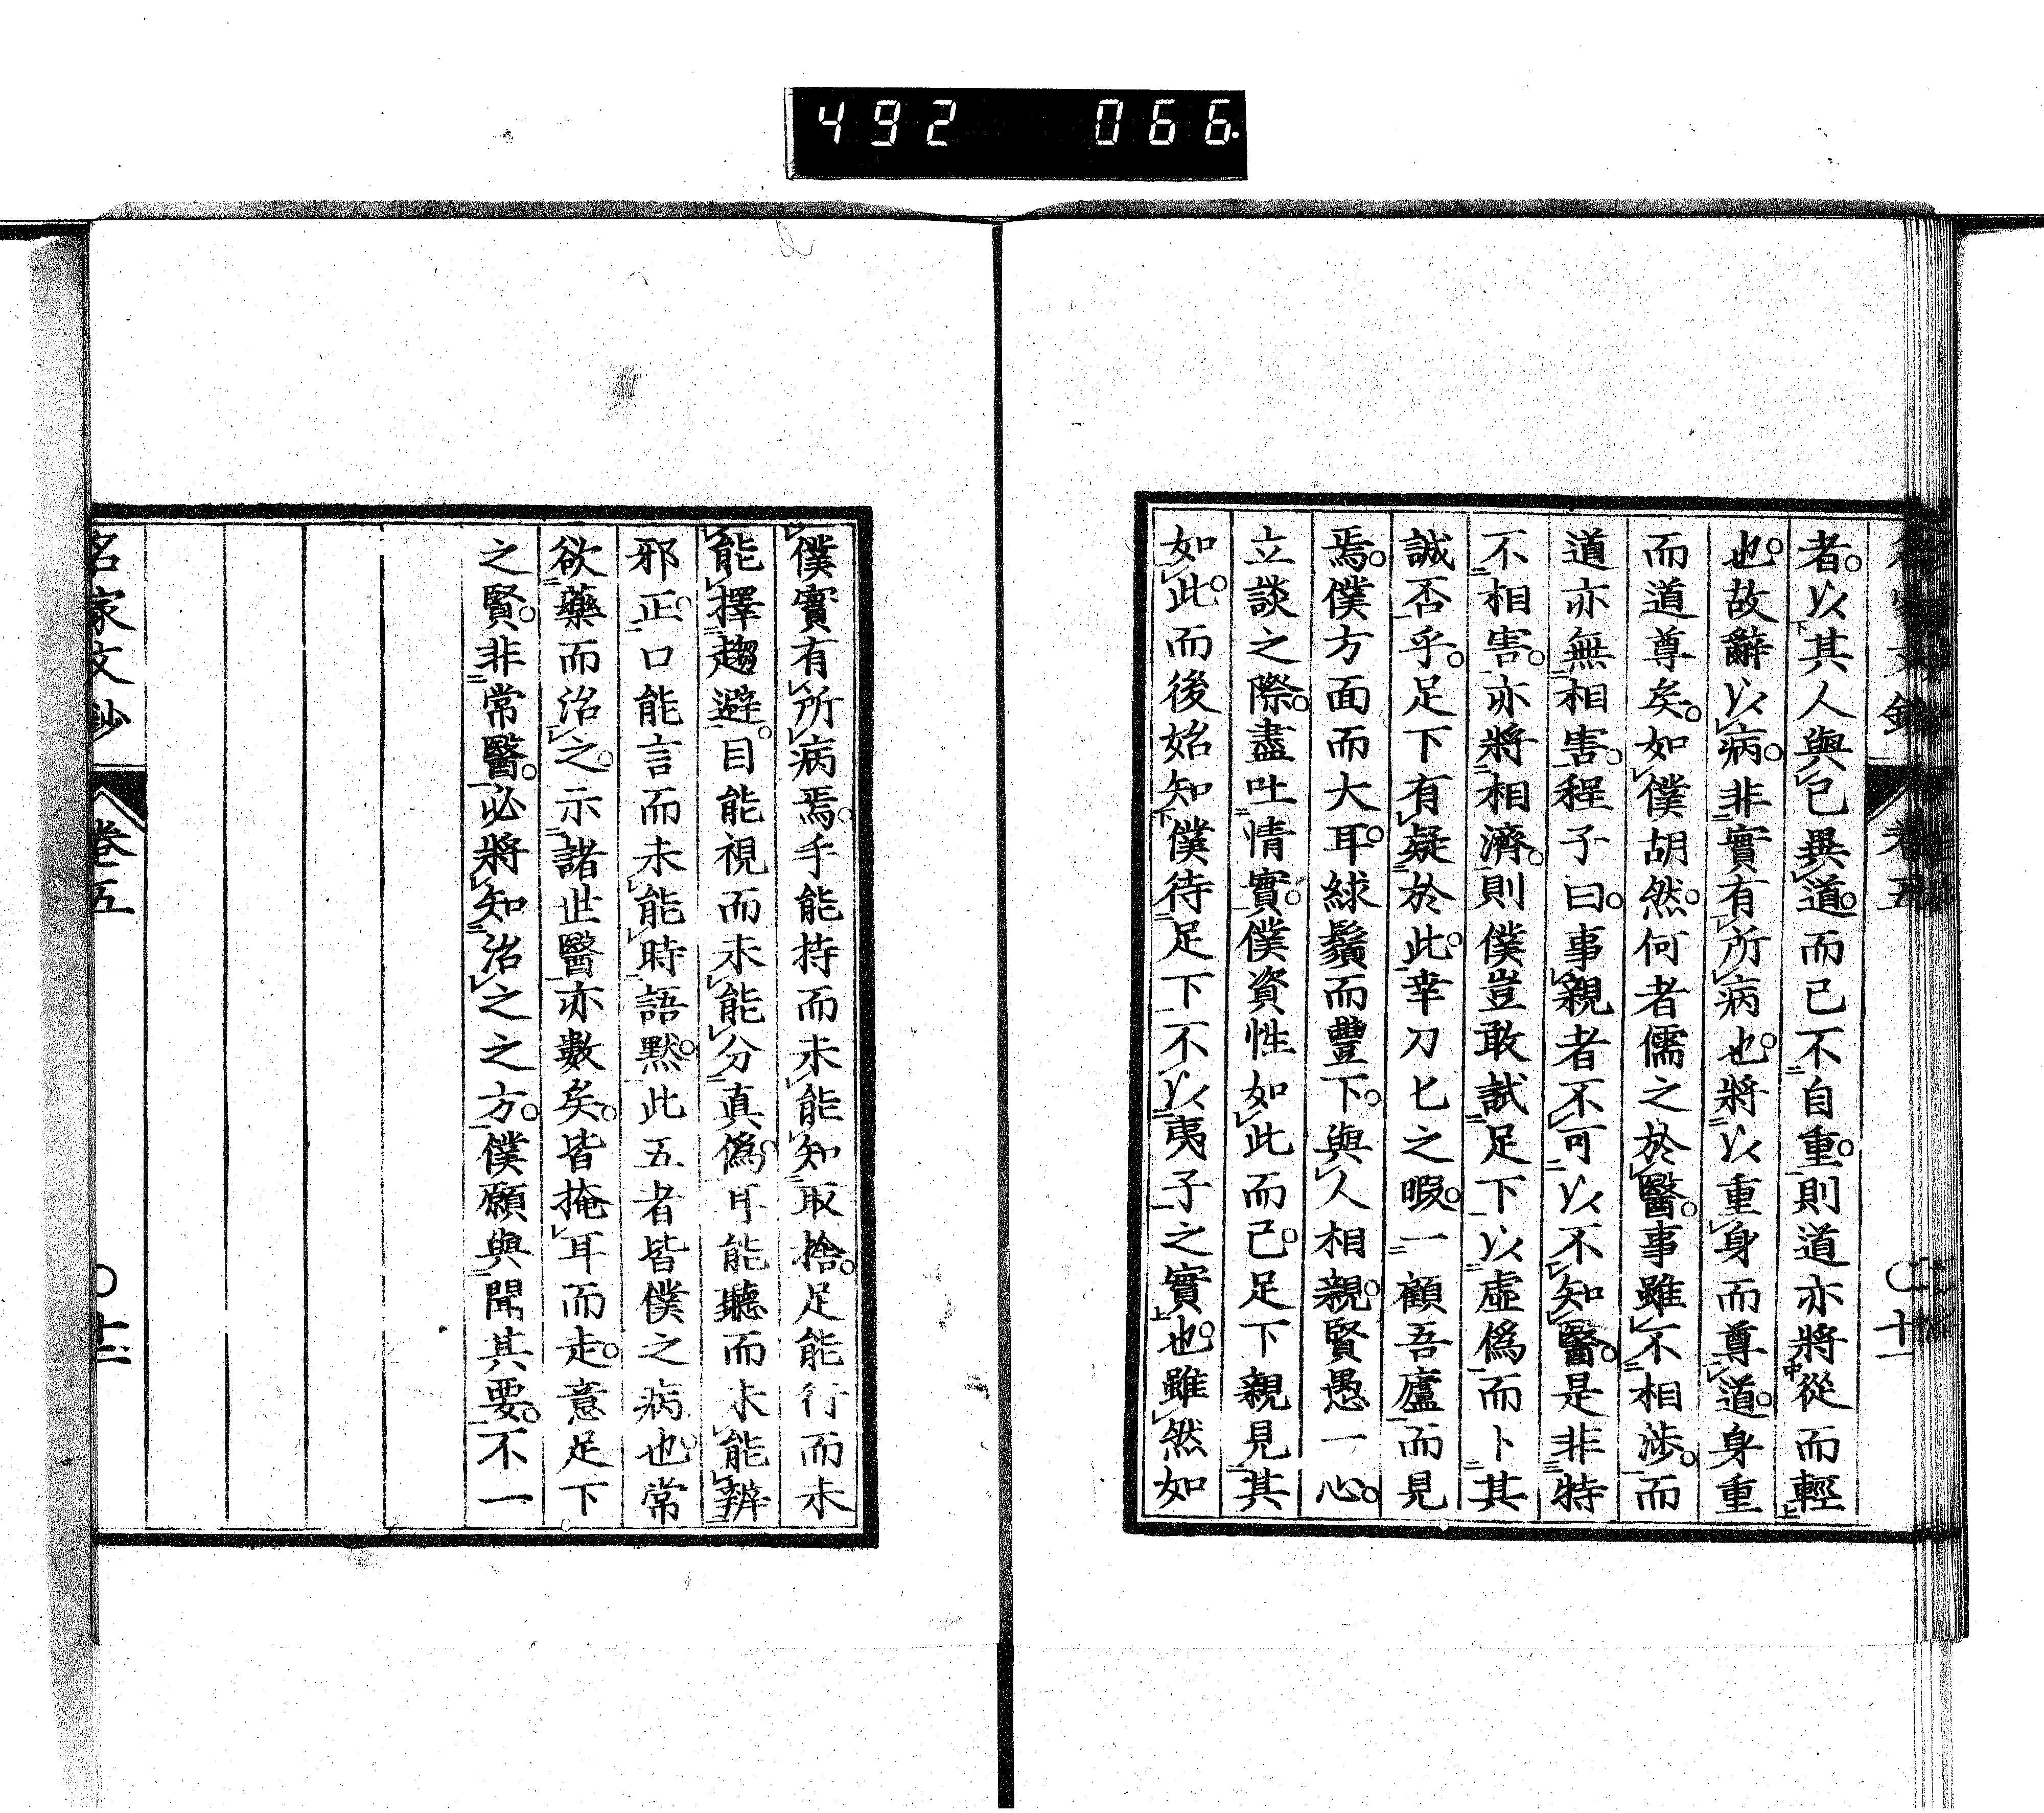 492 066.
者。以其人與己異道。而已不自重。則道亦將從而輕
也。故辭以病。非實有所病也。將以重身而尊道。身重
而道尊矣。如僕胡然。何者儒之於醫。事雖不相渉。而
道亦無相害。程子曰。事親者不可以不知醫。是非特
不相害。亦將相濟。則僕豈敢試足下以虛僞而卜其
誠否乎。足下有疑於此。幸刀匕之暇。一顧吾廬而見
焉。僕方面而大耳。絿鬚而豐下。與人相親。賢愚一心。
立談之際。盡吐情實。僕資性如此而已。足下親見其
如此。而後始知僕待足下不以夷子之實也。雖然如
僕實有所病焉。手能持而未能知取捨。足能行而未
能擇趨避。目能視而未能分真僞。耳能聽而未能辨
邪正。口能言而未能時語默。此五者皆僕之病也。常
欲藥而治之。示諸世醫亦數矣。皆掩耳而走。意足下
之賢。非常醫。必將知治之之方。僕願與聞其要。不一
名家文鈔 卷五 〇十二